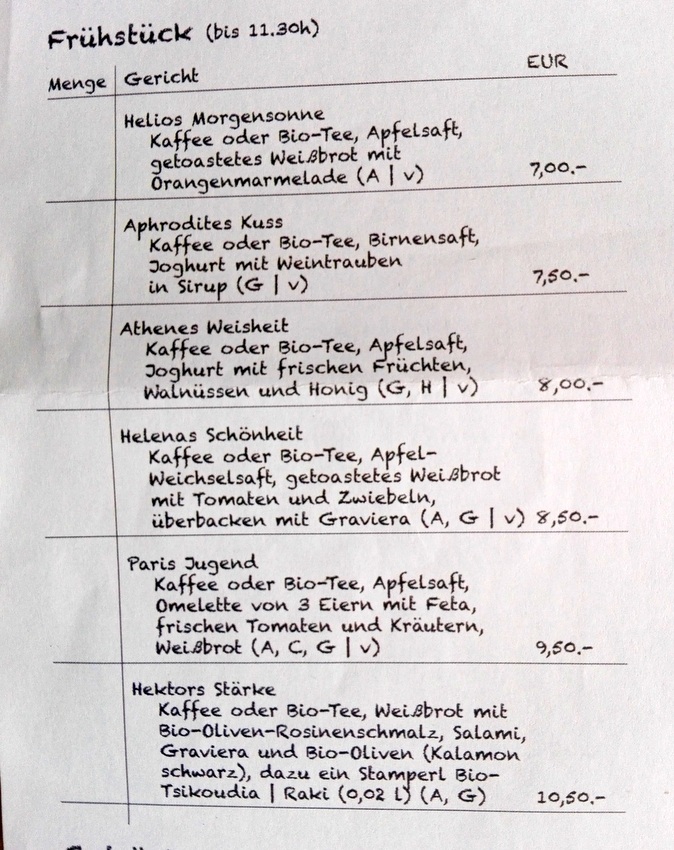 Frühstück (bis 11.30h)
Menge Gericht EUR
Helios Morgensonne
Kaffee oder Bio-Tee, Apfelsaft,
getoastetes Weißbrot mit
Orangenmarmelade (A | v) 7,00.-
Aphrodites Kuss
Kaffee oder Bio-Tee, Birnensaft,
Joghurt mit Weintrauben
in Sirup (G | v) 7,50.-
Athenes Weisheit
Kaffee oder Bio-Tee, Apfelsaft,
Joghurt mit frischen Früchten,
Walnüssen und Honig (G, H | v) 8,00.-
Helenas Schönheit
Kaffee oder Bio-Tee, Apfel-
Weichselsaft, getoastetes Weißbrot
mit Tomaten und Zwiebeln,
überbacken mit Graviera (A, G | v) 8,50.-
Paris Jugend
Kaffee oder Bio-Tee, Apfelsaft,
Omelette von 3 Eiern mit Feta,
frischen Tomaten und Kräutern,
Weißbrot (A, C, G | v) 9,50.-
Hektors Stärke
Kaffee oder Bio-Tee, Weißbrot mit
Bio-Oliven-Rosinenschmalz, Salami,
Graviera und Bio-Oliven (Kalamon
schwarz), dazu ein Stamperl Bio-
Tsikoudia | Raki (0,02 l) (A, G) 10,50.-